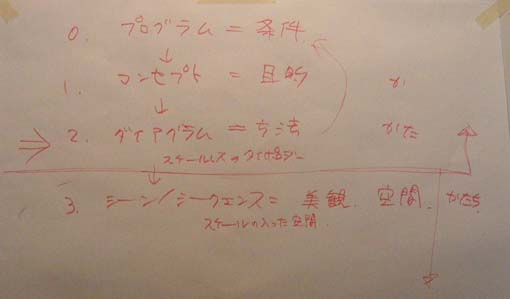 0. プログラム = 条件
↓
1. コンセプト = 目的 か
↓
⇒ 2. ダイアグラム = 方法 かた
スケールレスの
↓
3. シーン/シークエンス = 美観. 空間. かたち
スケールの入った空間